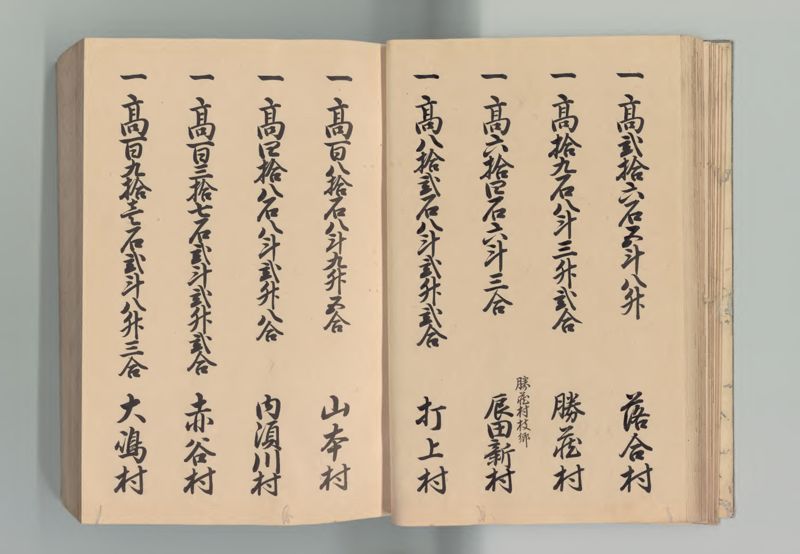 一高弐拾六石五斗八升 落合村
一高拾九石八斗三升弐合 勝蔵村
勝蔵村枝郷
一高六拾四石六斗三合 辰田新村
一高八拾弐石八斗弐升弐合 打上村
一高百八拾石八斗九升五合 山本村
一高四拾八石八斗弐升八合 内須川村
一高百三拾七石弐斗弐升弐合 赤谷村
一高百九拾壱石弐斗八升三合 大嶋村